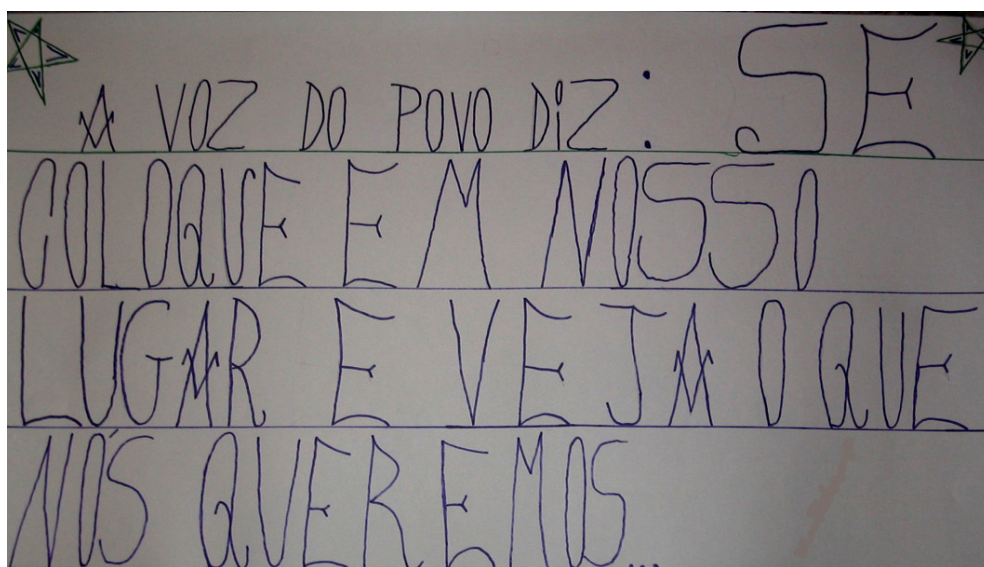 A VOZ DO POVO DiZ: SE
COLOQUE EM NOSSO
LUGAR E VEJA O QUE
NÓS QUEREMOS...